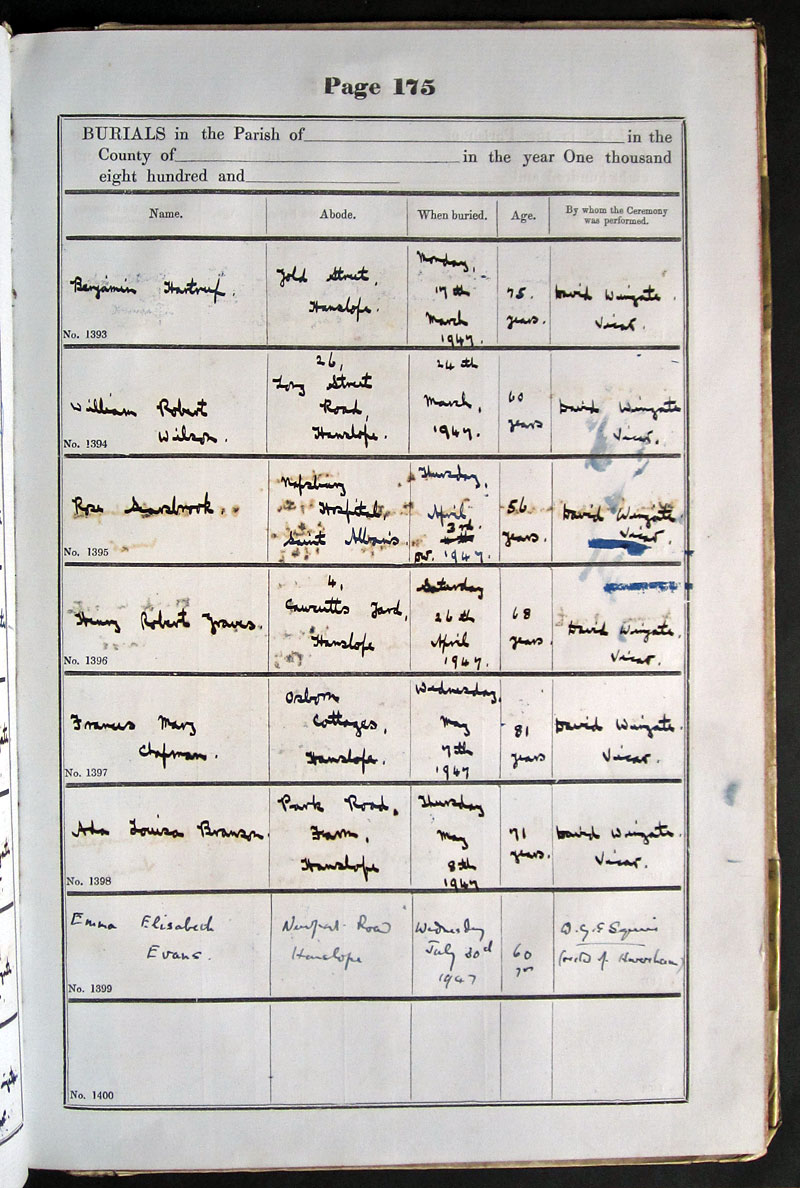 Page 175
BURIALS in the Parish of in the
County of in the year One thousand
eight hundred and
Name. Abode. When buried. Age. By whom the Ceremony
was performed.
Benjamin Hartrup. Gold Street, Hanslope. Monday, 17th March 1947. 75 years. David Wingate. Vicar.
No. 1393
William Robert Wilson. 26, Long Street Road, Hanslope. 24th March, 1947. 60 years David Wingate Vicar.
No. 1394
Rose Scarsbrook. Napsbury Hospital, Saint Albans. Thursday, April 3rd. 1947. 56 years. David Wingate Vicar.
No. 1395
Henry Robert Graves. 4, Cawcutts Yard, Hanslope Saturday 26th April 1947. 68 years. David Wingate. Vicar.
No. 1396
Frances Mary Chapman. Osborn Cottages, Hanslope. Wednesday, May 7th 1947 81 years David Wingate. Vicar.
No. 1397
Ada Louisa Branson. Park Road, Farm, Hanslope Thursday May 8th 1947 71 years. David Wingate. Vicar.
No. 1398
Emma Elisabeth Evans. Newport Road Hanslope Wednesday July 30th 1947 60 yrs Squires (rector of Haversham)
No. 1399
No. 1400